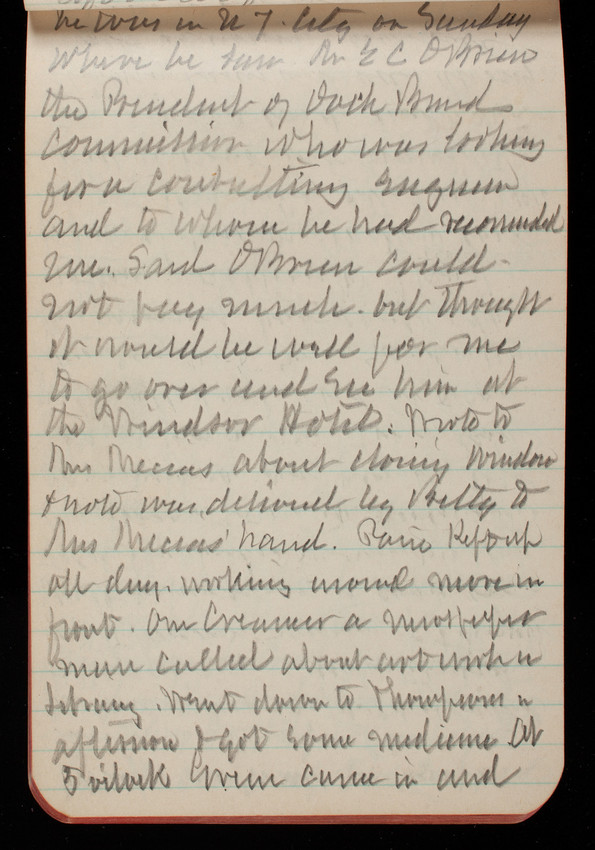 he was in N Y. City on Sunday
where he saw Mr E C O'Brien
the President of Dock Board
Commission who was looking
for a consulting Engineer
and to whom he had recomended
me. Said O'Brien could
not pay much. but thought
it would be well for me
to go over and see him at
the Windsor Hotel. Wrote to
Mrs about closing window
& note was delivered by Pretty to
Mrs hand. Rain Kept up
all day. working around more in
front. One Creamer a newspaper
man called about artwork in
Library. Went down to Thompsons in
afternoon & got some medicine At
5 oclock Green came in and